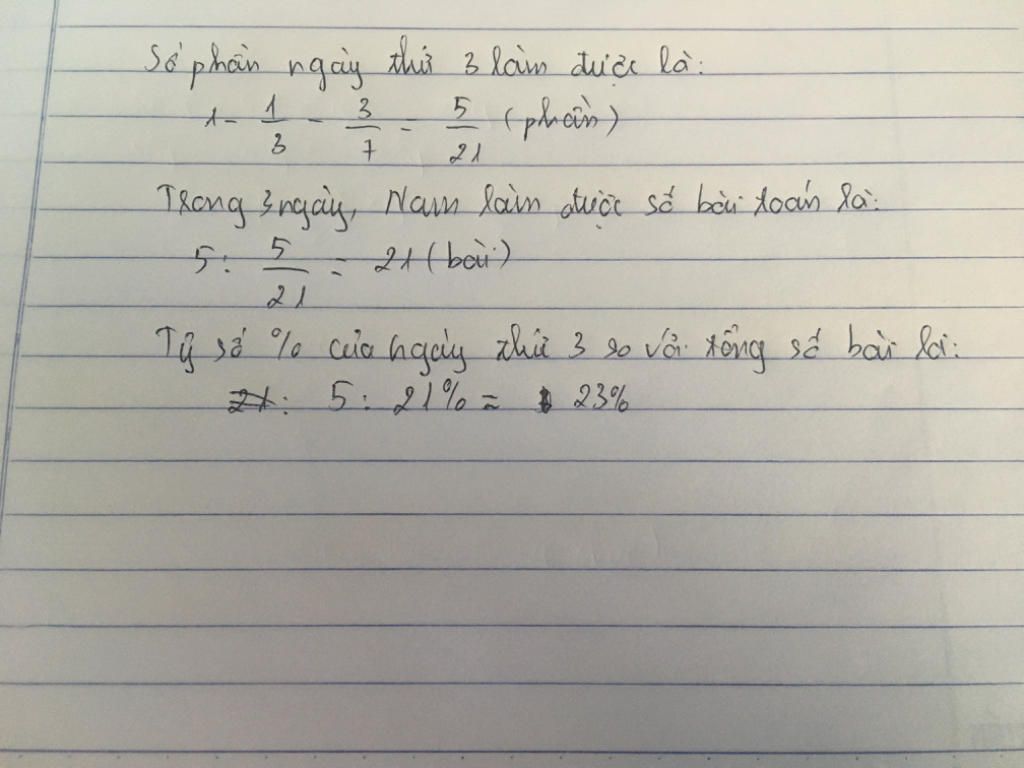 Số phần ngày thứ 3 làm được là:
1 - 1/3 - 3/7 = 5/21 (phần)
Trong 3 ngày, Nam làm được số bài toán là:
5 : 5/21 = 21 (bài)
Tỷ số % của ngày thứ 3 so với tổng số bài là:
5 : 21% = 23%